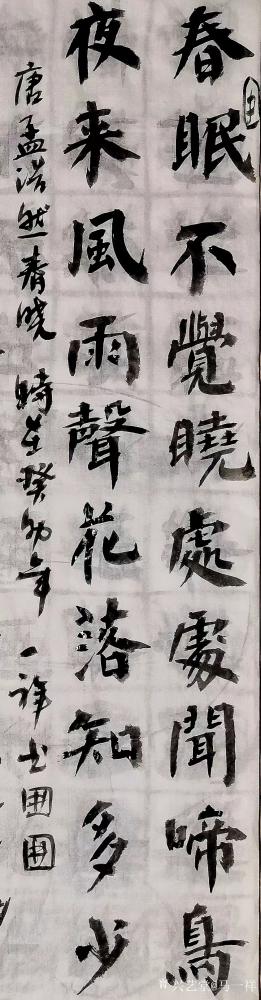 春眠不覺曉處處聞啼鳥
夜来風雨聲花落知多少
唐孟浩然春曉 時在癸卯年 一祥书
兴艺堂@马一样